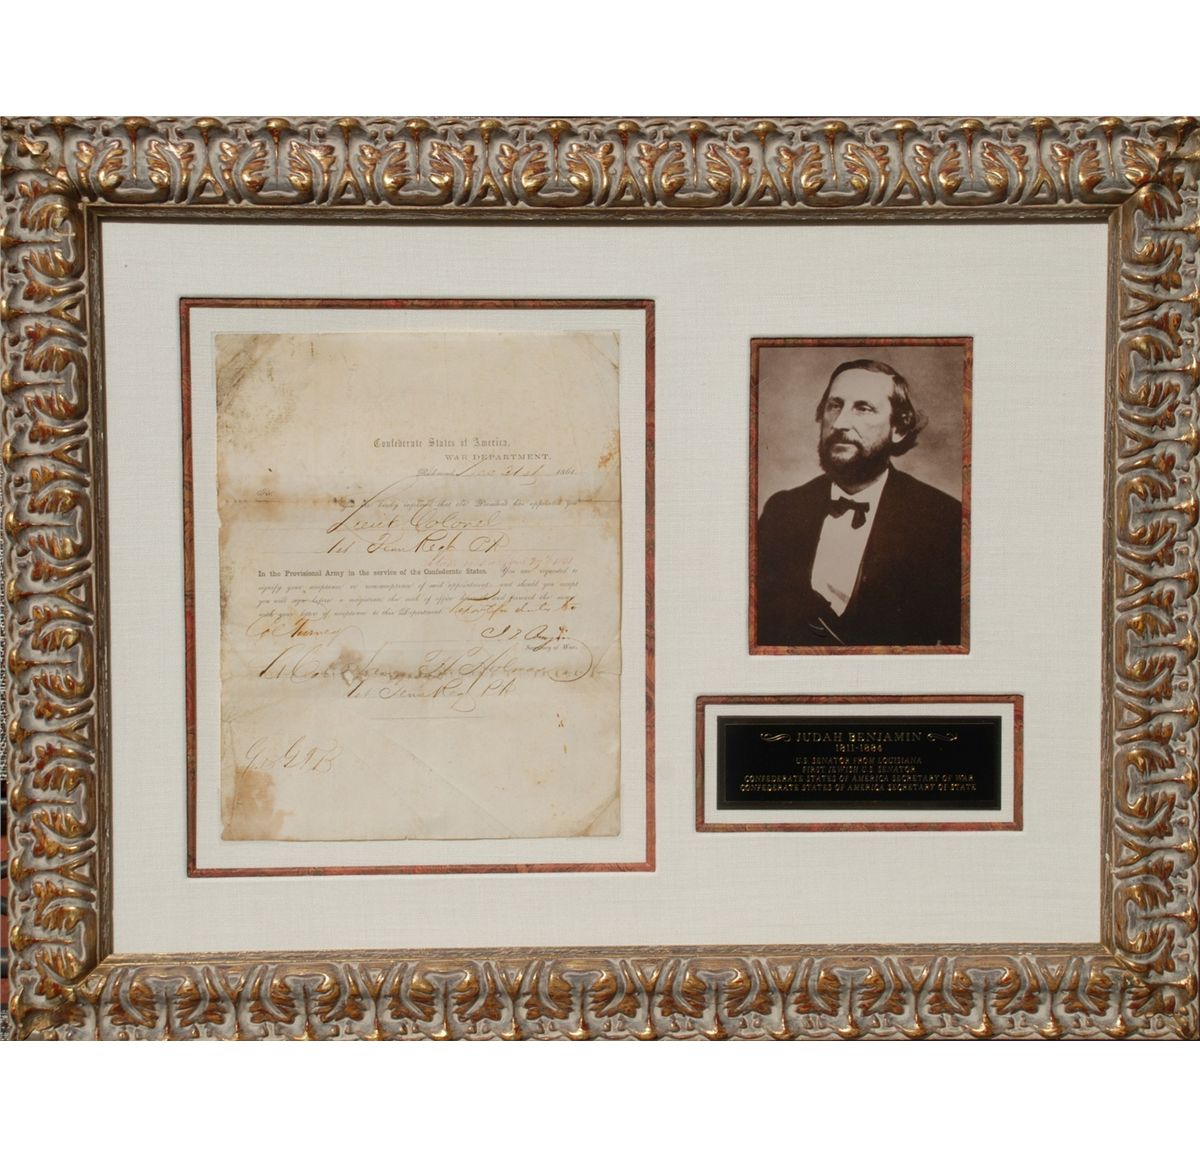 Confederate States of America,
WAR DEPARTMENT.
Richmond, 21st 1861
Sir:
You are hereby informed that the President has appointed you
Lieut Colonel
1st Tenn Regt PA
In the Provisional Army in the service of the Confederate States. You are requested to
signify your acceptance or non-acceptance of said appointment; and should you accept
you will sign before a magistrate the oath of office herewith and forward the same
with your letter of acceptance to this Department. Report for duty to
Col Turney
Secretary of War.
Lt Col
1st Tenn Reg PA
JUDAH BENJAMIN
1811-1884
U.S. SENATOR FROM LOUISIANA
FIRST JEWISH U.S. SENATOR
CONFEDERATE STATES OF AMERICA SECRETARY OF WAR
CONFEDERATE STATES OF AMERICA SECRETARY OF STATE